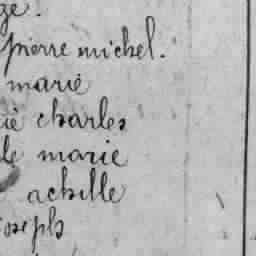 ge.
pierre michel.
marie
ie charles
le marie
achille
joseph